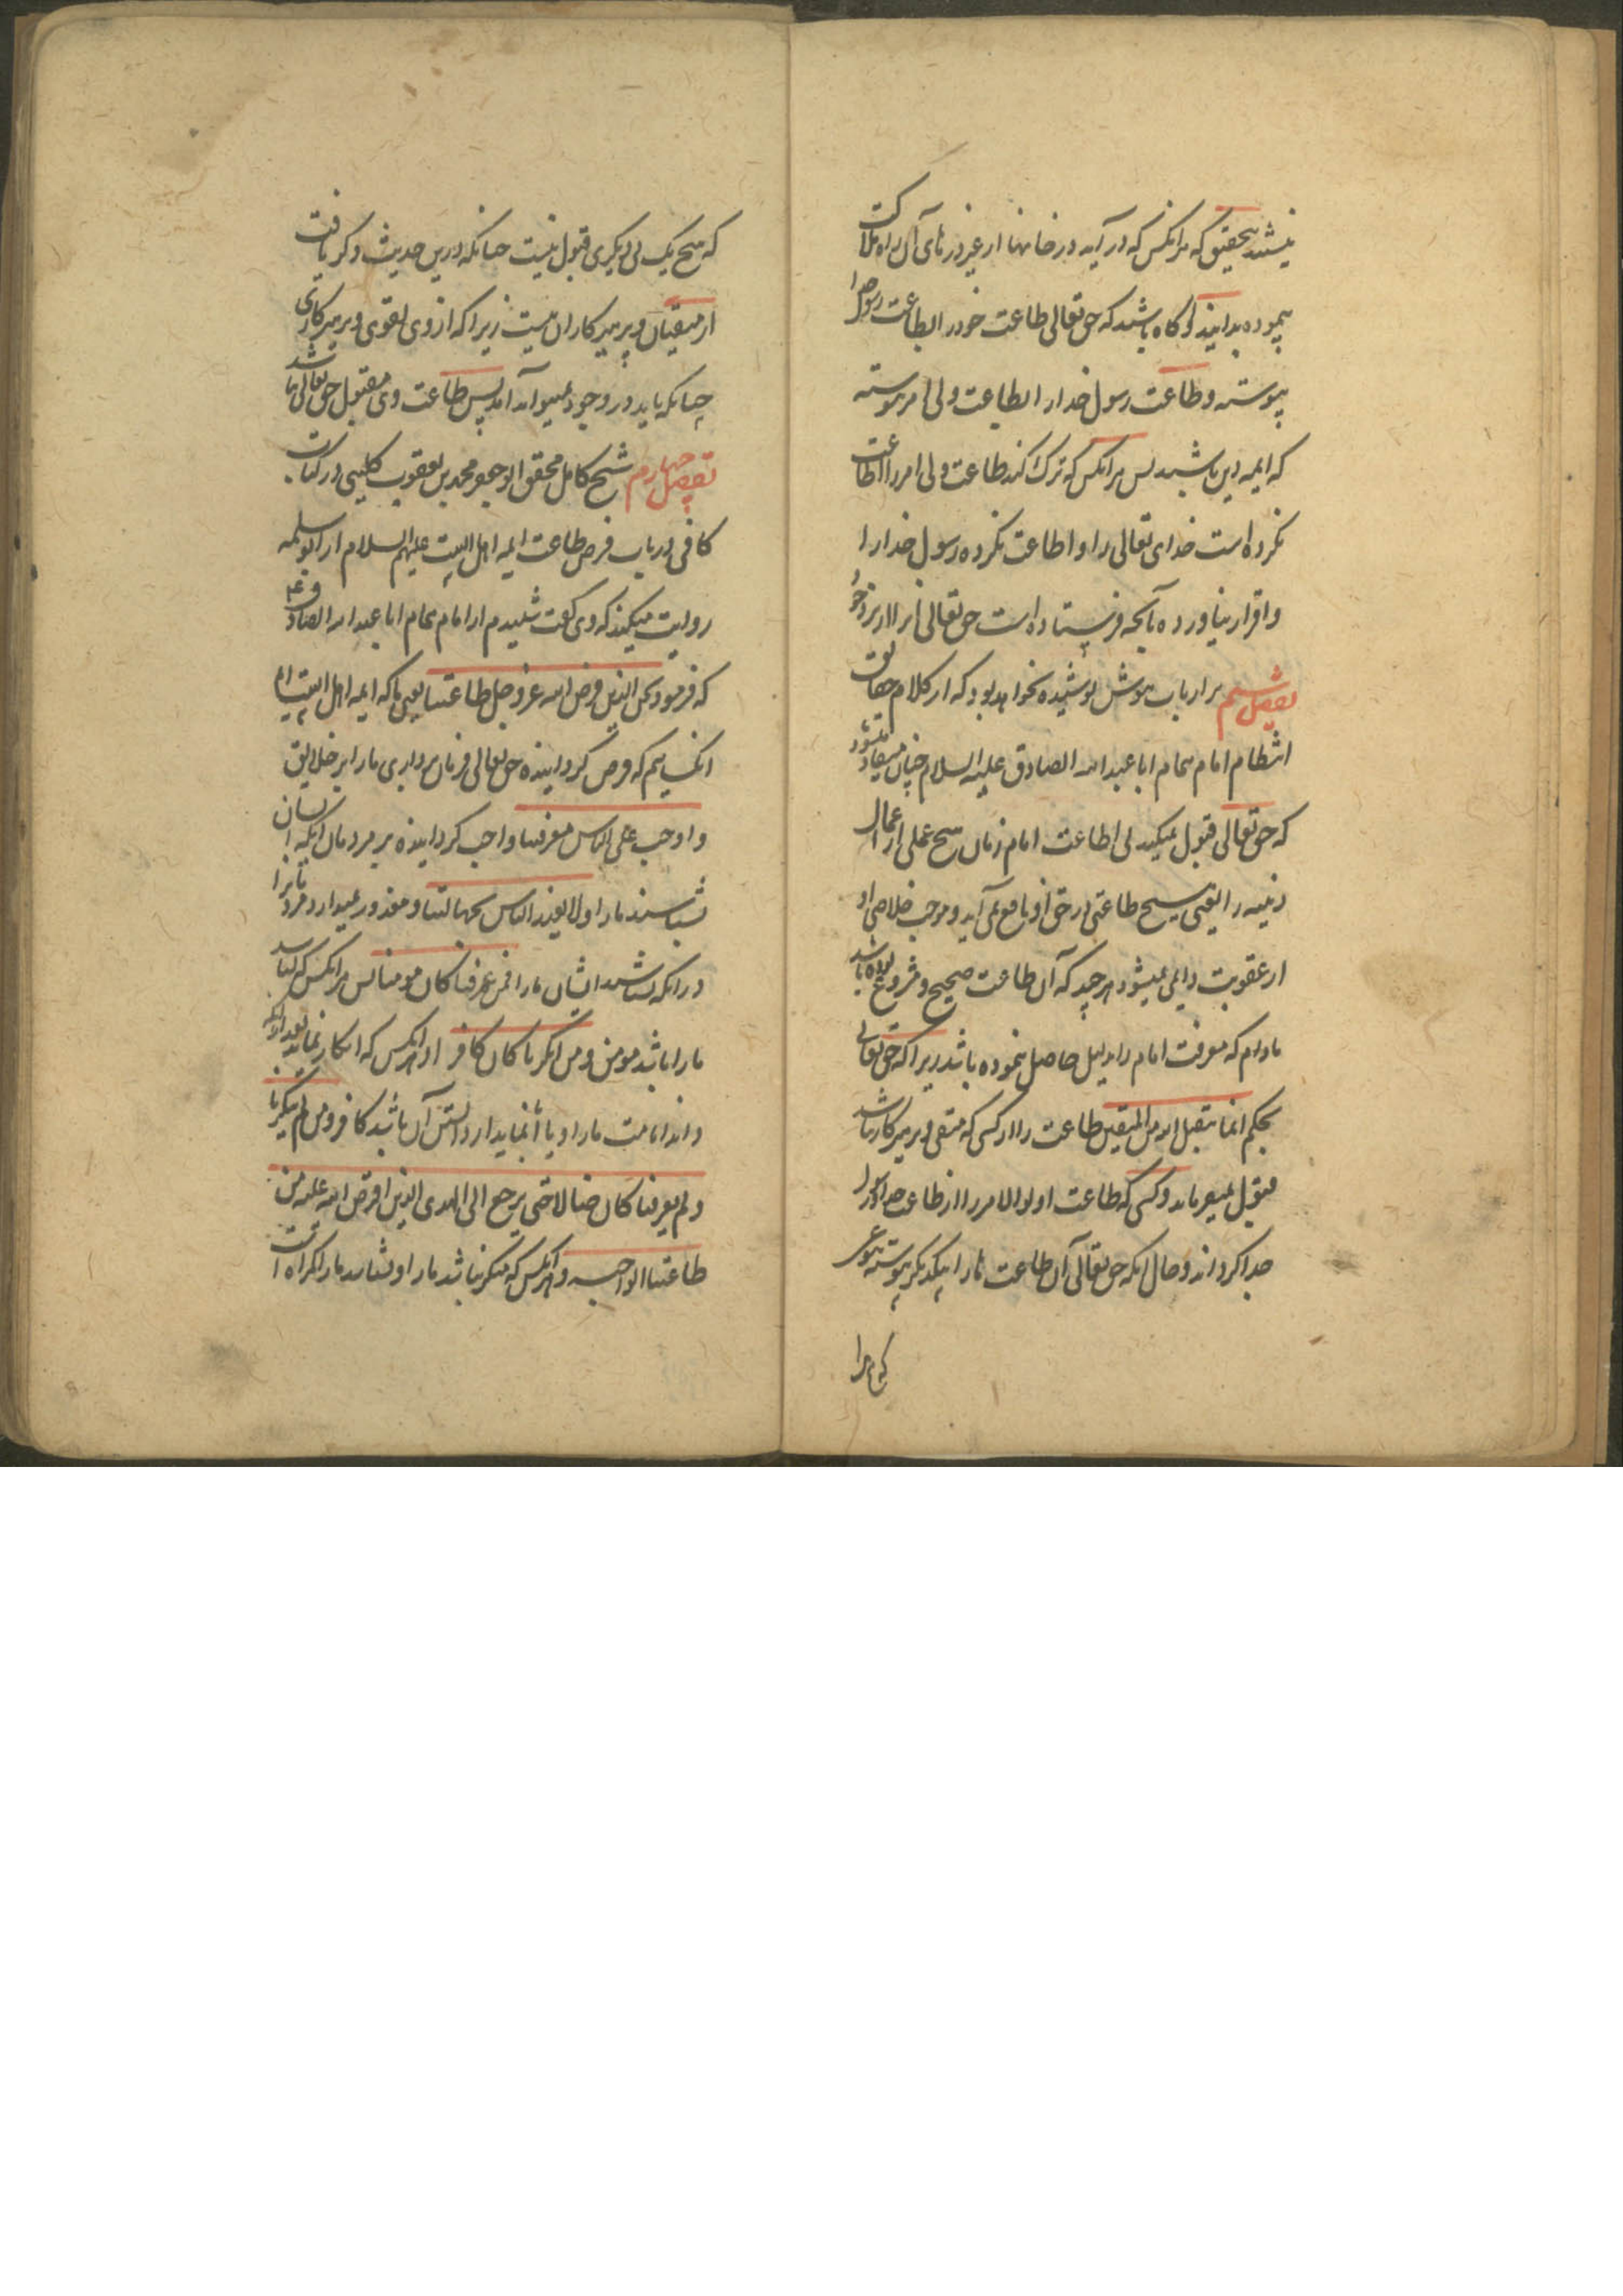 نیستند بتحقیق که هر انکس که در آید در خانها از غیر درهای آن راه هلاکت
پیموده بدانید و آگاه باشید که حق تعالی طاعت خود را بطاعت رسول خدا
پیوسته و طاعت رسول خدا را بطاعت ولی امر پیوسته
که ایمه دین باشند پس هر انکس که ترک کند طاعت ولی امر را اطاعت
نکرده است خدای تعالی را و اطاعت نکرده رسول خدا را
و اقرار نیاورده بآنچه فرستاده است حق تعالی انرا از نزد خود
بر ارباب هوش پوشیده نخواهد بود که از کلام حقایق
انتظام امام همام ابا عبد الله الصادق علیه السلام چنان مستفاد میشود
که حق تعالی قبول نمیکند بی اطاعت امام زمان هیچ عملی از اعمال
دنییه را یعنی هیچ طاعتی در حق او نافع نمی آید و موجب خلاصی او
از عقوبت دایمی نمیشود هر چند که آن طاعت صحیح و مشروع بوده باشد
مادام که معرفت امام را بدلیل حاصل ننموده باشد زیرا که حق تعالی
بحکم انما یتقبل الله من المتقین طاعت را از کسی که متقی و پرهیزکار باشد
قبول میفرماید و کسی که طاعت اولوالامر را از طاعت خدا و رسول
جدا کرداند و حال انکه حق تعالی آن طاعت ها را بیکدیکر پیوسته بنوعی
که هیچ یک بی دیکری قبول نیست چنانکه درین حدیث ذکر یافت
از متقیان و پرهیزکاران نیست زیرا که از وی تقوی و پرهیزکاری
چنانکه باید در وجود نمیتواند آمد پس طاعت وی مقبول حق تعالی نباشد
تفصیل چهارم شیخ کامل محقق ابو جعفر محمد بن یعقوب کلینی در کتاب
کافی در باب فرض طاعت ایمه اهل البیت علیهم السلام از ابو سلمه
روایت میکند که وی گفت شنیدم از امام همام ابا عبد الله الصادق ع
که فرمود نحن الذین فرض الله عز و جل طاعتنا یعنی ما که ایمه اهل البیت ایم
انکسانیم که فرض کردانیده حق تعالی فرمان برداری ما را بر خلایق
و اوجب علی الناس معرفتنا و واجب کردانیده بر مردمان انکه ایشان
بشناسند ما را و لا یعذر الناس بجهالتنا و معذور نمیدارد مردمانرا
در انکه نشناسند ایشان ما را فمن عرفنا کان مومنا پس هر انکس که بشناسد
ما را باشد مومن و من انکرنا کان کافر او هر انکس که انکار نماید بعد از انکه
داند امامت ما را و یا ابا نماید از دانستن آن باشد کافر و من لم ینکرنا
و لم یعرفنا کان ضالا حتی یرجع الی الهدی الذی افترض الله علیه من
طاعتنا الواجبه و هر انکس که منکر نباشد ما را و نشناسد ما را گمراه است